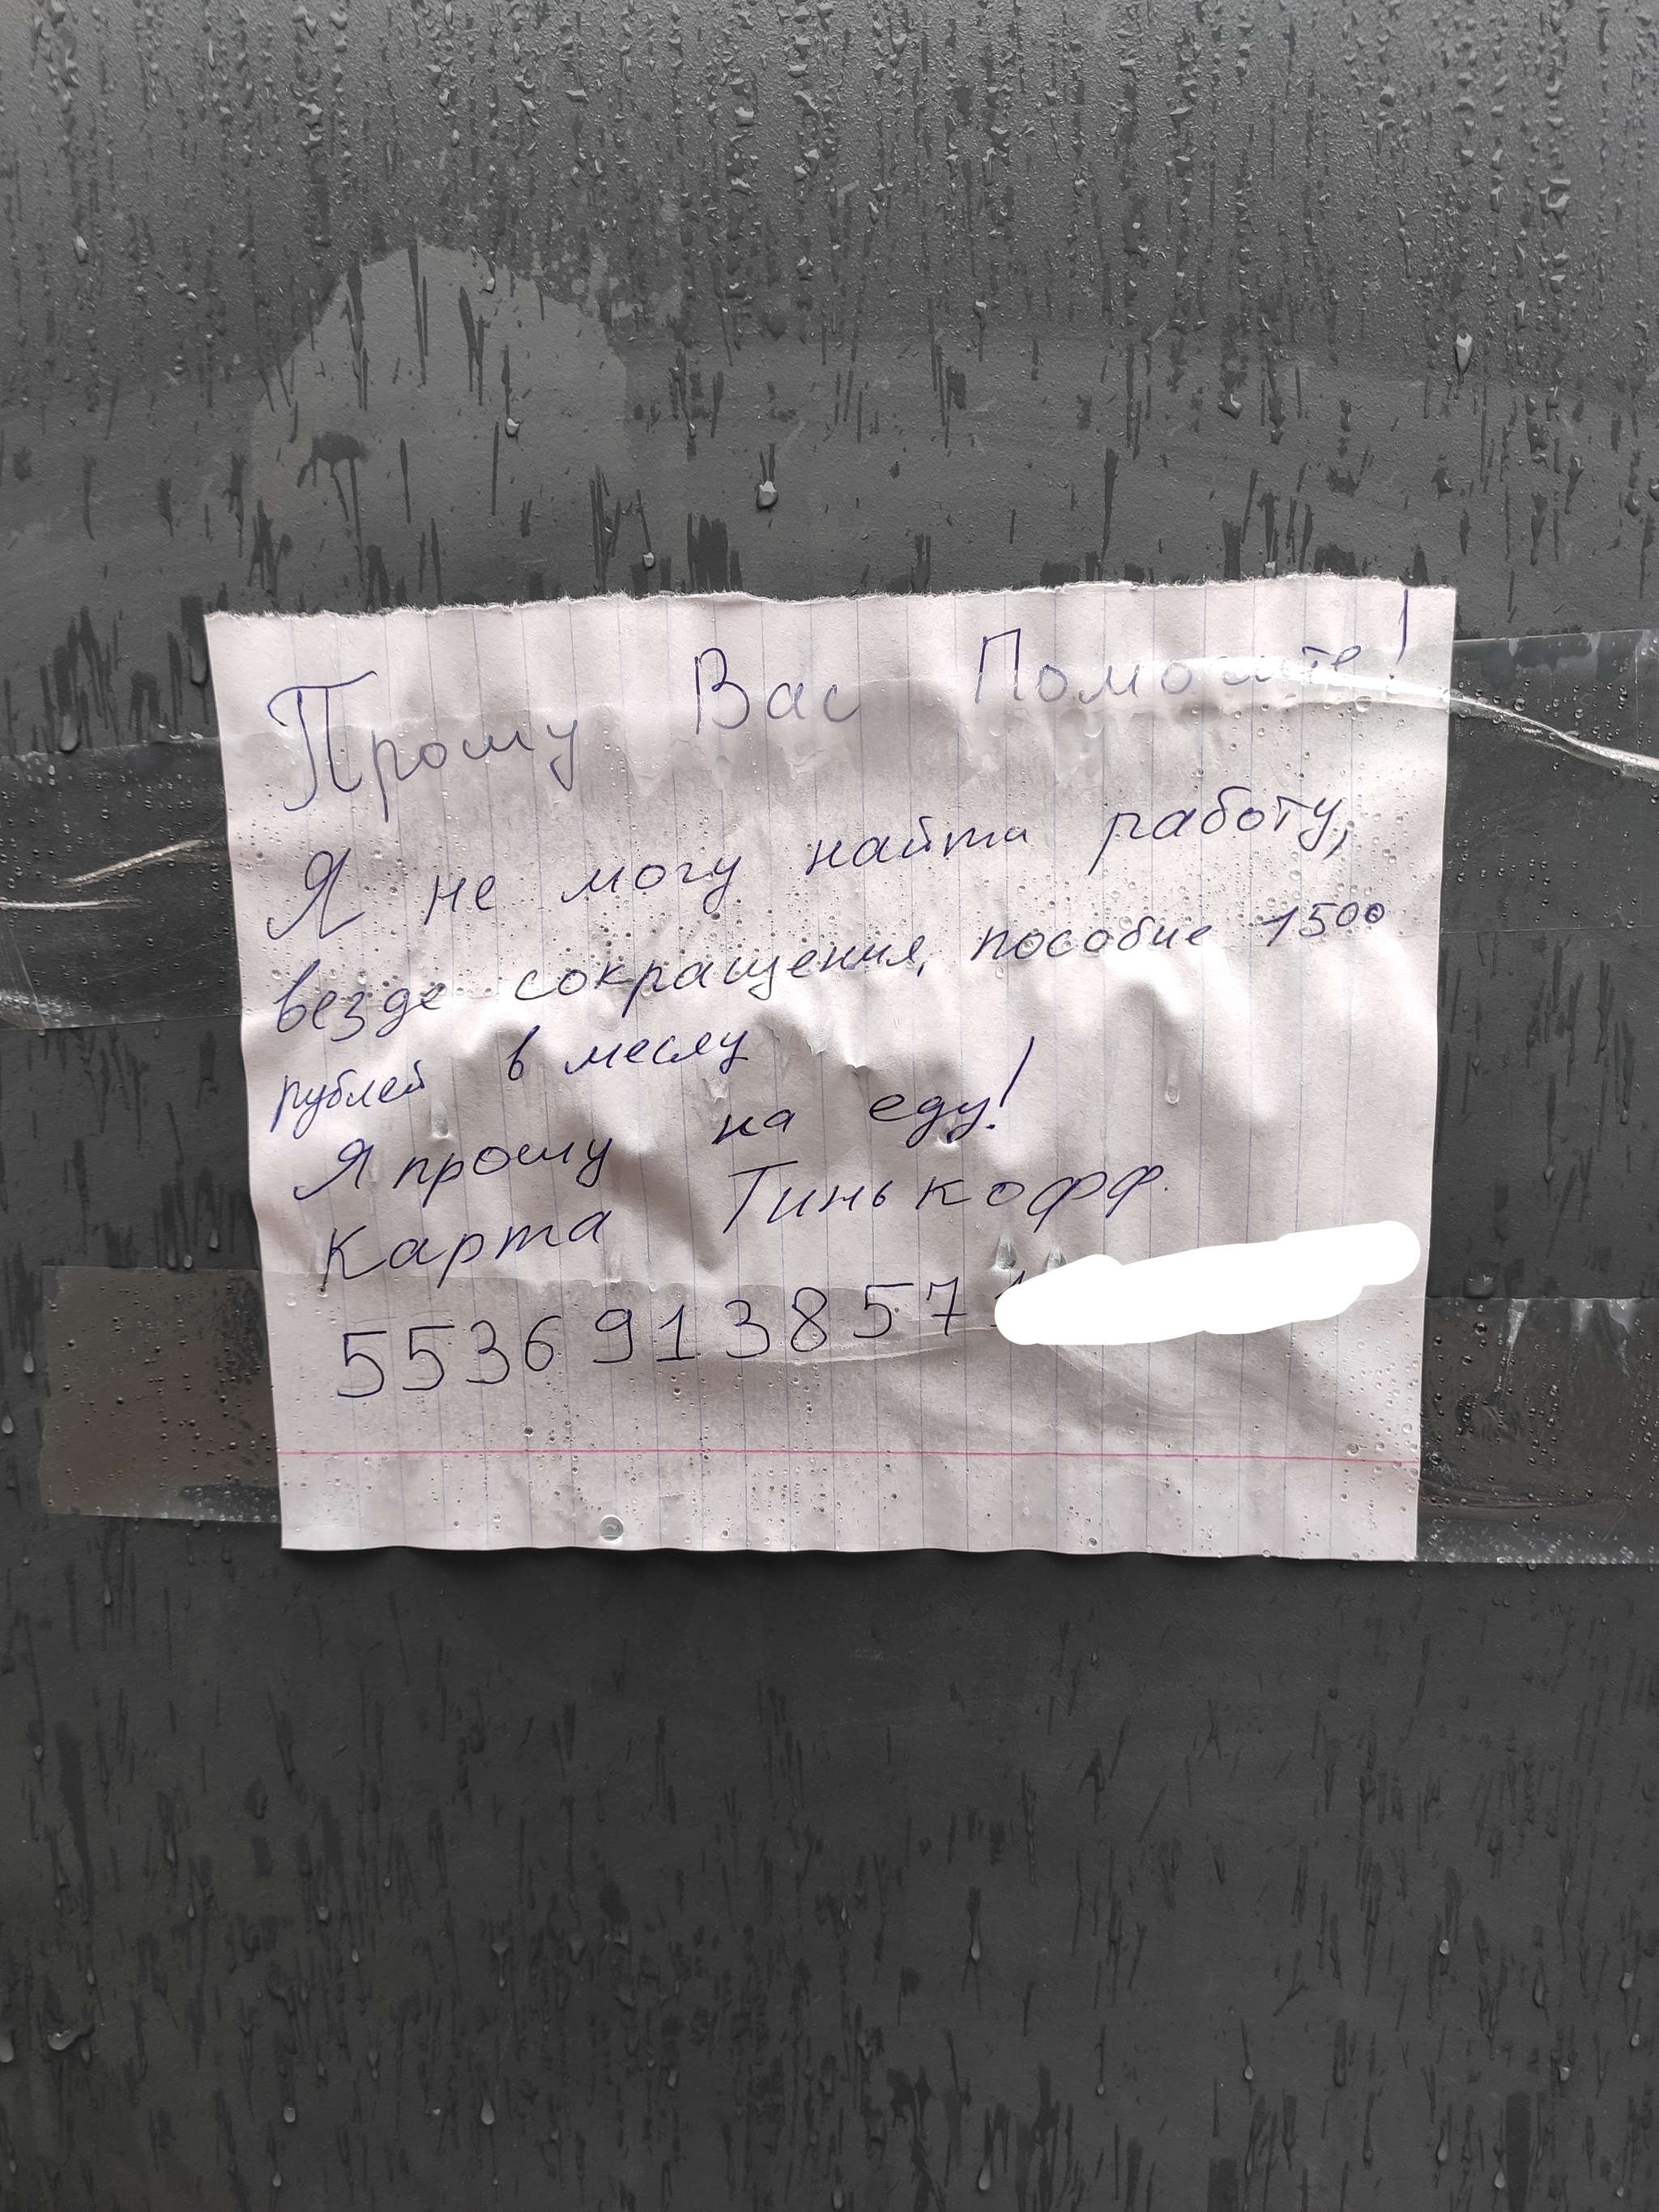 Прошу Вас Помогите!
Я не могу найти работу,
везде сокращения, пособие 1500
рублей в месяц
Я прошу на еду!
Карта Тинькофф.
5536913857